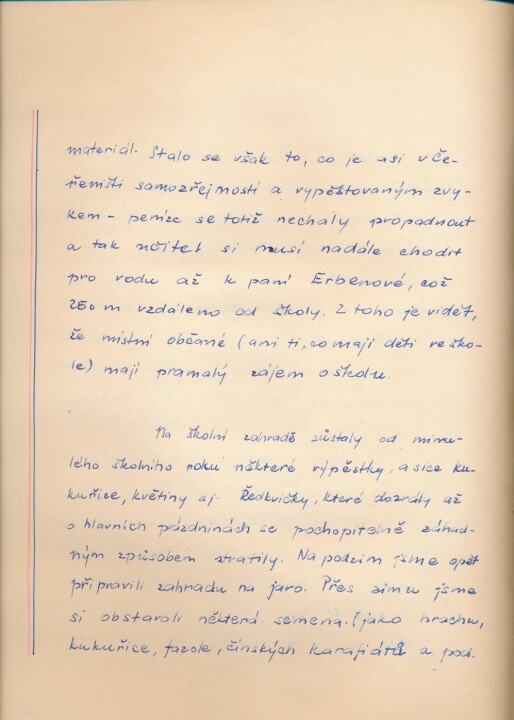 materiál. Stalo se však to, co je asi v Če-
řemišti samozřejmostí a vypěstovaným zvy-
kem - peníze se totiž nechaly propadnout
a tak učitel si musí nadále chodit
pro vodu až k paní Erbenové, což
250 m vzdáleno od školy. Z toho je vidět,
že místní občané (ani ti, co mají děti ve ško-
le) mají pramalý zájem o školu.
Na školní zahradě zůstaly od minu-
lého školního roku některé výpěstky, a sice ku-
kuřice, květiny aj. Ředkvičky, které dozrály až
o hlavních prázdninách se pochopitelně záhad-
ným způsobem ztratily. Na podzim jsme opět
připravili zahradu na jaro. Přes zimu jsme
si obstarali některá semena. (jako hrachu,
kukuřice, fazole, čínských karafiátů a pod.